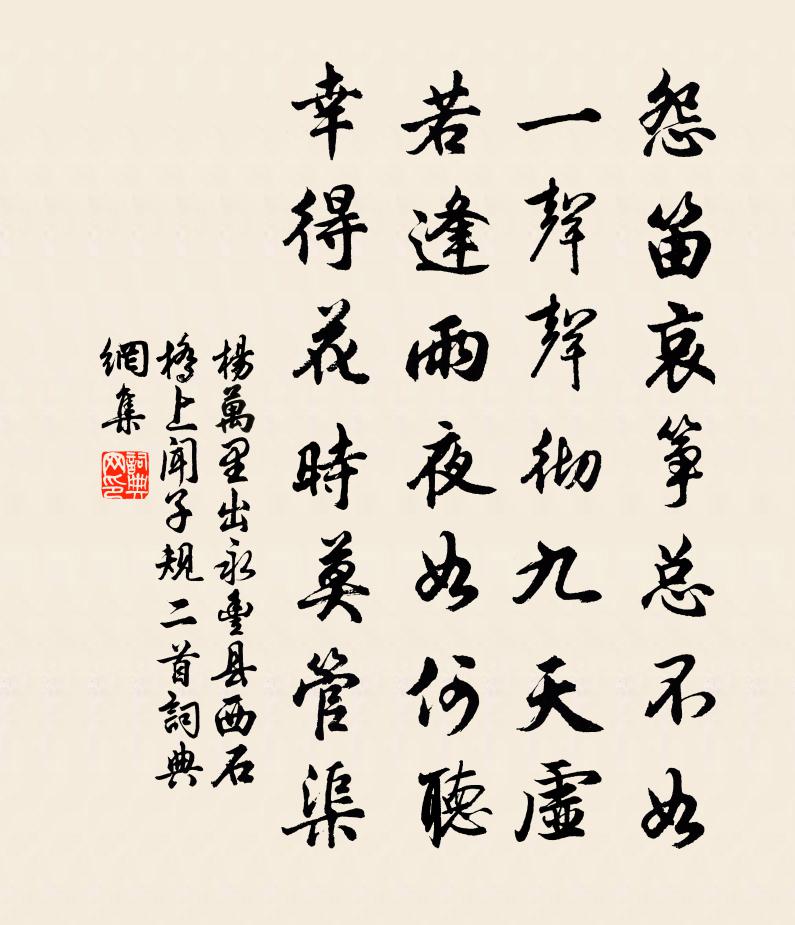 怨笛哀筝总不如
一聲聲彻九天虛
若逢雨夜如何聽
幸得花時莫管渠
楊萬里出永豊县西石
橋上闻子規二首詞典
網集
詞典
网印